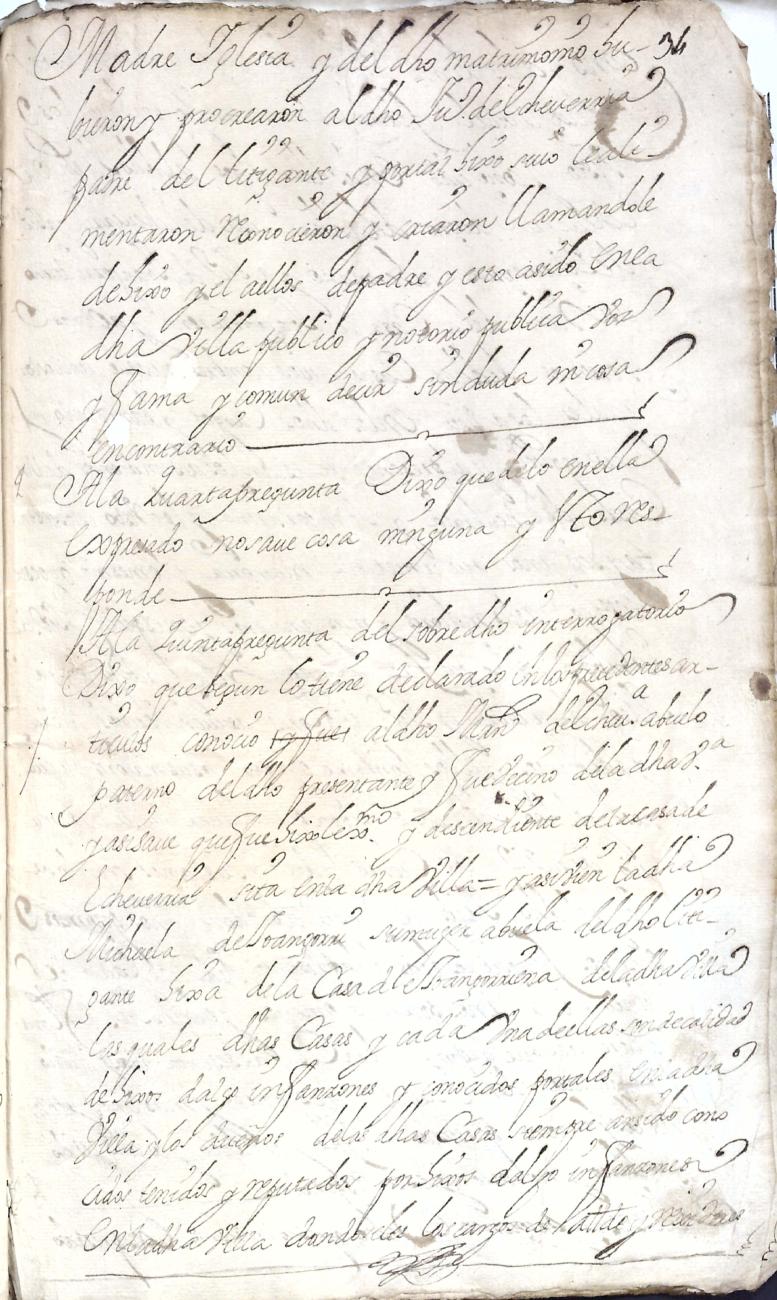 Madre Iglesia y del dho matrimonio hu- 34
bieron y procrearon al dho Ju.º de Echeverria
padre del litigante y portal hixo suio leali-
mentaron Reconocieron y criaron llamandole
de hixo y el aellos depadre y esto asido enla
dha Villa publico y notorio publica Voz
y fama y comun decir sin duda ni cosa
encontrario
4 Ala Quarta pregunta Dixo que de lo enella
expresado nosave cosa ninguna y Esto Res-
ponde
Ala Quinta pregunta del sobre dho interrogatorio
Dixo que segun lo tiene declarado enlos precedentes ar-
ticulos conocio y fue al dho Mañ de Echeu.ª abuelo
paterno del dho presentante y fue vecino dela dha V.ª
y asi save que fue hixo lexmo. y descendiente dela casa de
Echeverria sita enla dha Villa = y asi vien la dha
Michaela de su muger abuela del dho Liti-
gante hixa dela Casa de dela dha Villa
las quales dhas Casas y cada Una de ellas son de calidad
de hixos dalgo infanzones y conocidos portales enla dha
Villa y los dueños delas dhas Casas siempre an sido cono
cidos tenidos y reputados por hixos dalgo infanzones
Enla dha Villa dandoseles los cargos de Allde y Regidores